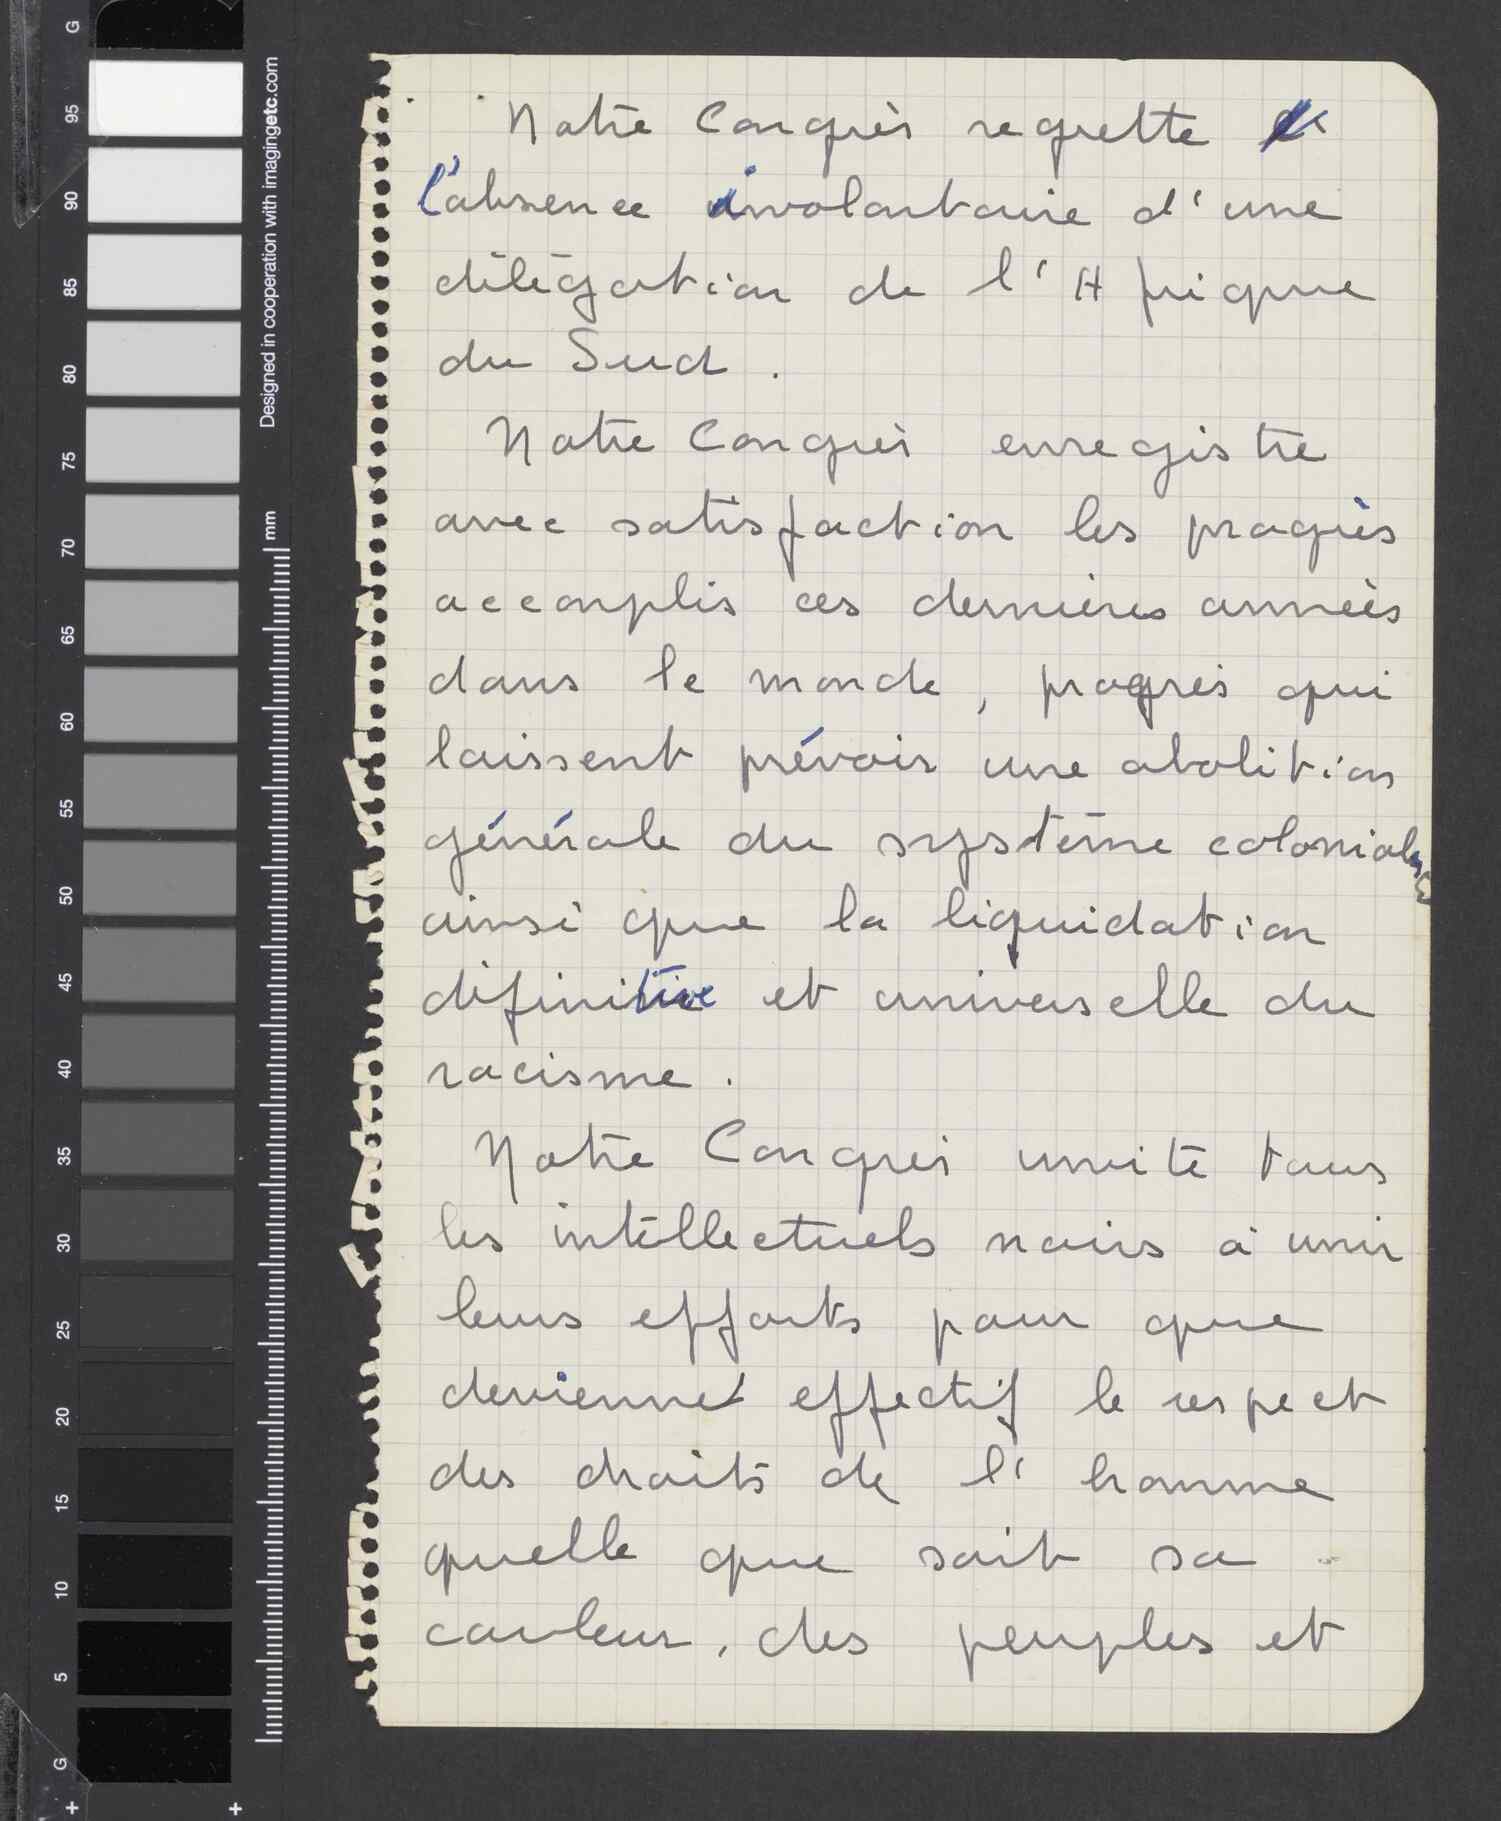 G
95
90
85
80
75
70
65
60
55
50
45
40
35
30
25
20
15
10
5
G
Designed in cooperation with imagingetc.com
mm
Notre Congrès regrette
l'absence involontaire d'une
délégation de l'Afrique
du Sud.
Notre Congrès enregistre
avec satisfaction les progrès
accomplis ces dernières années
dans le monde, progrès qui
laissent prévoir une abolition
générale du système colonial
ainsi que la liquidation
définitive et universelle du
racisme.
Notre Congrès invite tous
les intellectuels noirs à unir
leurs efforts pour que
devienne effectif le respect
des droits de l'homme
quelle que soit sa
couleur, des peuples et